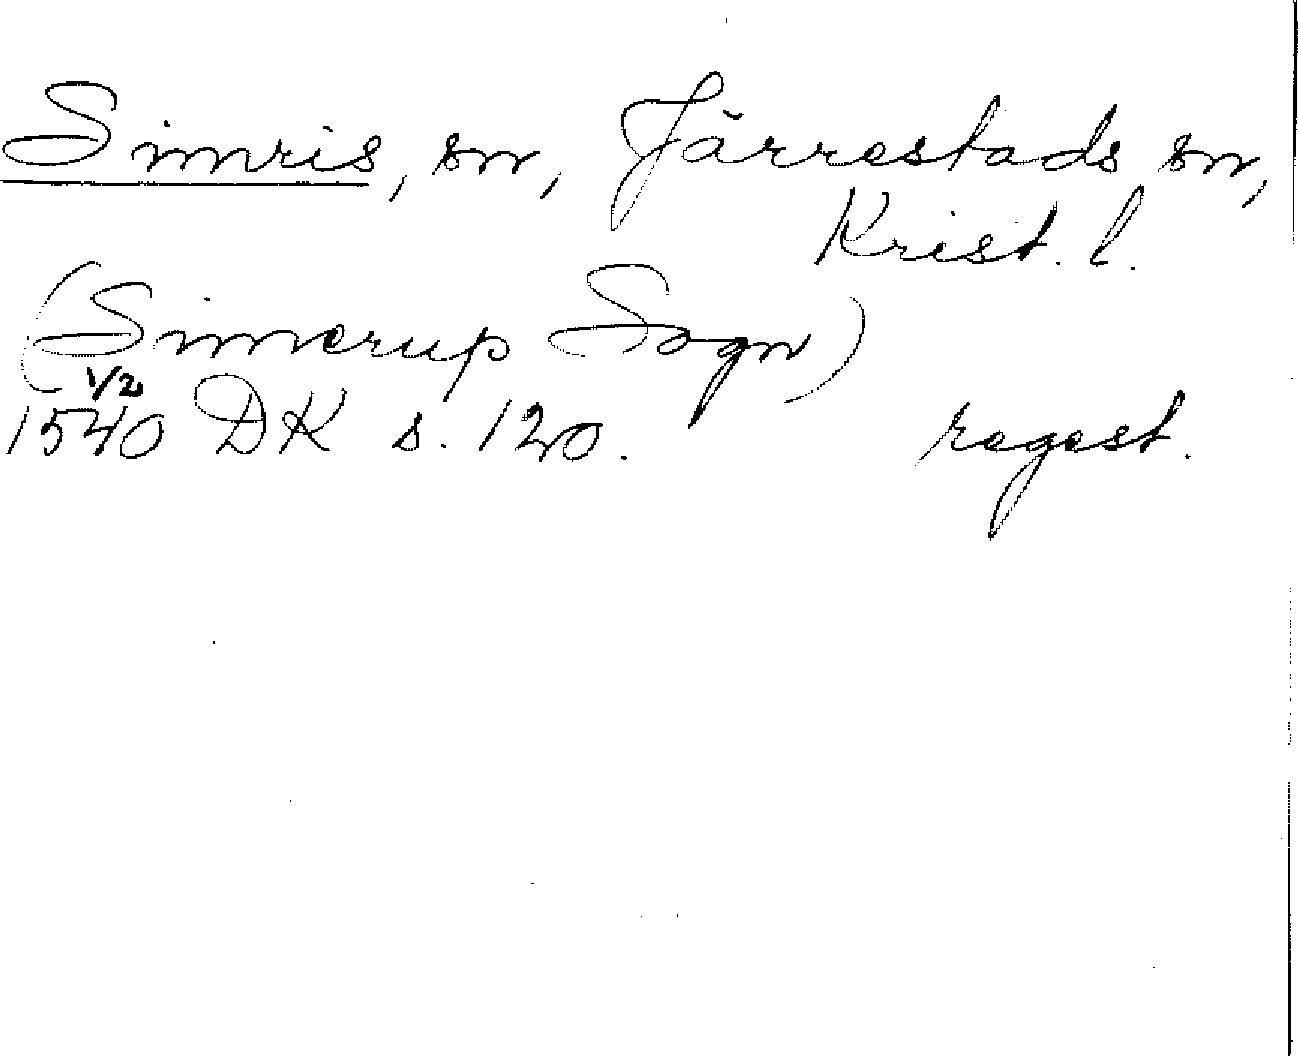 Simris, sn, Järrestads sn,
Krist. l.
(Simerup Sogn)
1/2
1540 DK s. 120. regest.